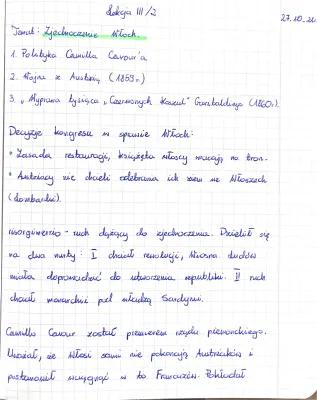 Lekcja III/2
27.10.20
Temat: Zjednoczenie Włoch.
1. Polityka Camilla Cavour'a
2. Wojna z Austrią (1859r.)
3. „Wyprawa tysiąca „Czerwonych Koszul" Garibaldiego (1860r.)
Decyzje kongresu w sprawie Włoch:
• Zasada restauracji, książęta włoscy wracają na tron.
• Austriacy nie chcieli odebrania ich ziem we Włoszech
(Lombardii).
risorgimento - ruch dążący do zjednoczenia. Dzielił się
na dwa nurty: I chciał rewolucji, Wiosna Ludów
miała doprowadzić do utworzenia republiki. II ruch
chciał monarchii pod władzą Sardynii.
Camillo Cavour został premierem rządu piemonckiego.
Uważał, że Włosi sami nie pokonają Austriaków i
postanowił wciągnąć w to Francuzów. Pokładał